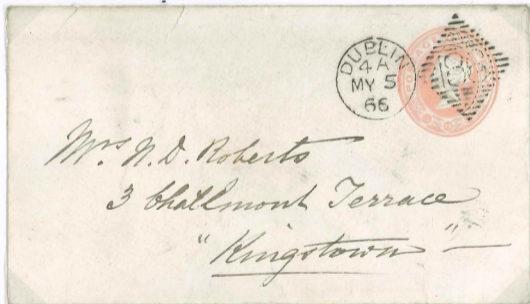 DUBLIN
4 A
MY 5
66
Mrs N. D. Roberts
3 Challmont Terrace
"Kingstown"